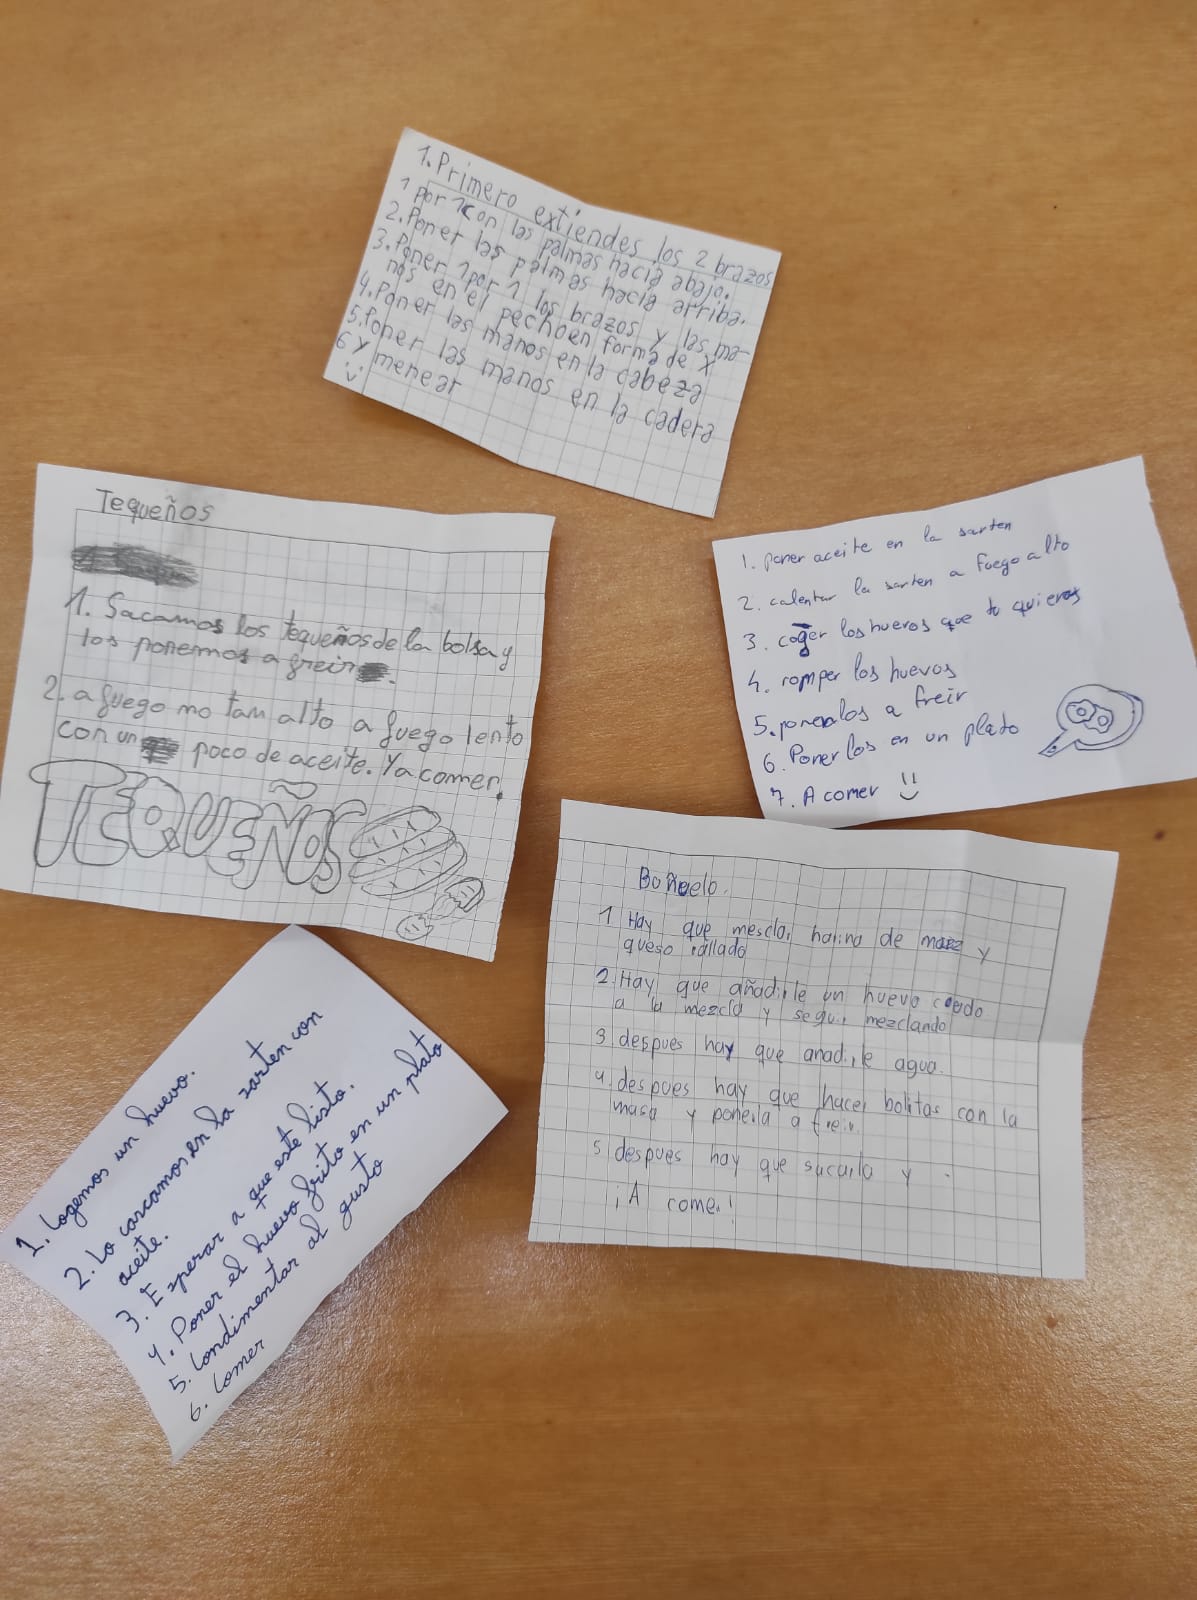 1. Primero extiendes los 2 brazos
1 por 1 con las palmas hacia abajo.
2. Poner las palmas hacia arriba.
3. Poner 1 por 1 los brazos y las ma-
nos en el pecho en forma de X
4. Poner las manos en la cabeza
5. Poner las manos en la cadera
6 Y menear
Tequeños
1. Sacamos los tequeños de la bolsa y
los ponemos a freir.
2. a fuego no tan alto a fuego lento
con un poco de aceite. Y a comer.
TEQUEÑOS
1. poner aceite en la sarten
2. calentar la sarten a fuego alto
3. coger los huevos que tu quieras
4. romper los huevos
5. ponerlos a freir
6. Ponerlos en un plato
7. A comer
Boñuelo.
1 Hay que mesclar harina de maez y
queso rallado
2. Hay que añadirle un huevo crudo
a la mezcla y seguir mezclando
3 despues hay que anadirle agua.
4. despues hay que hacer bolitas con la
masa y ponerla a freir.
5 despues hay que sacarla y
¡A comer!
1. Cogemos un huevo.
2. Lo cascamos en la sarten con
aceite.
3. Esperar a que este listo.
4. Poner el huevo frito en un plato
5. Condimentar al gusto
6. Comer